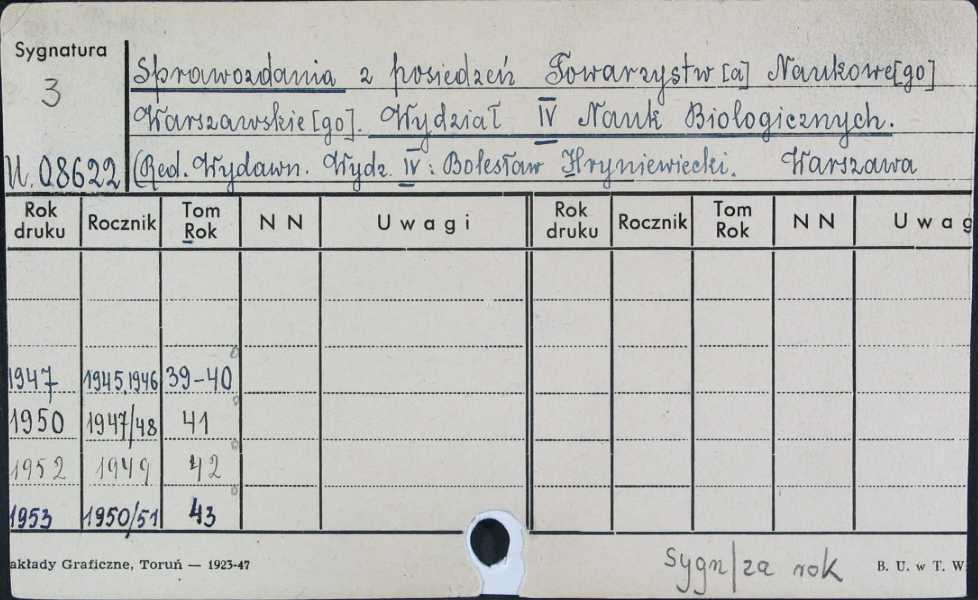 Sygnatura
3
U. 08622
Sprawozdania z posiedzeń Towarzystw[a] Naukowe[go]
Warszawskie[go]. Wydział IV Nauk Biologicznych.
(Red. Wydawn. Wydz. IV: Bolesław Hryniewiecki. Warszawa
Rok druku Rocznik Tom Rok N N Uwagi Rok druku Rocznik Tom Rok N N Uwag
1947 1945, 1946 39-40
1950 1947/48 41
1952 1949 42
1953 1950/51 43
akłady Graficzne, Toruń — 1923-47
sygn/za rok
B. U. w T. W